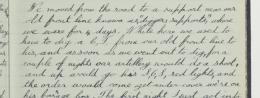 We moved from the road to a support near our
old front line known as Leger supports, where
we were for 4 days. While here we used to
have to dig a C.T. from our old front line to
his, and as soon as we went out to dig for a
couple of nights our artillery would do a shoot,
and up would go his S.O.S. red lights and
the order would come get under cover and so on
his barrage too. The first night I and